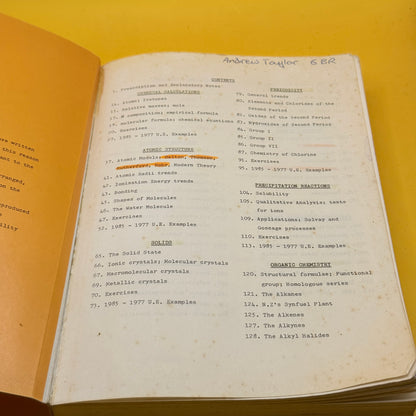 ere written
this reason
ant to the
rranged
pon the
eproduced
of
bility
Andrew Taylor 6BR
CONTENTS
1. Presentation and Explanatory Notes
CHEMICAL CALCULATIONS
14. Atoms; Isotopes
15. Relative masses; mole
17. % composition; empirical formula
molecular formula; chemical equations
20. Exercises
27. 1985 - 1977 U.E. Examples
ATOMIC STRUCTURE
37. Atomic Models; Dalton, Thomson,
Rutherford, Bohr, Modern Theory
41. Atomic Radii trends
42. Ionisation Energy trends
43. Bonding
45. Shapes of Molecules
46. The Water Molecule
47. Exercises
52. 1985 - 1977 U.E. Examples
SOLIDS
65. The Solid State
66. Ionic crystals; Molecular crystals
67. Macromolecular crystals
69. Metallic crystals
70. Exercises
73. 1985 - 1977 U.E. Examples
PERIODICITY
79. General trends
80. Elements and Chlorides of the
Second Period
81. Oxides of the Second Period
83. Hydroxides of Second Period
84. Group I
85. Group II
86. Group VII
87. Chemistry of Chlorine
91. Exercises
95. 1985 - 1977 U.E. Examples
PRECIPITATION REACTIONS
104. Solubility
105. Qualitative Analysis; tests
for ions
109. Applications; Solvay and
Gossage processes
110. Exercises
113. 1985 - 1977 U.E. Examples
ORGANIC CHEMISTRY
120. Structural formulae; Functional
group; Homologous series
121. The Alkanes
124. N.Z's Synfuel Plant
125. The Alkenes
127. The Alkynes
128. The Alkyl Halides